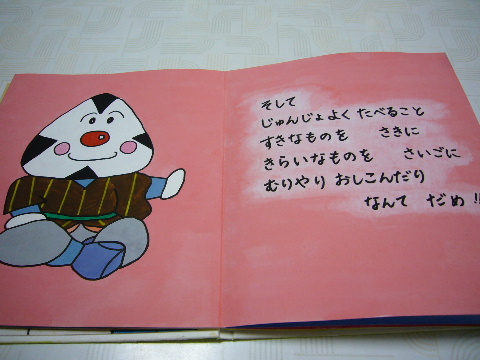 そして
じゅんじょよく たべること
すきなものを さきに
きらいなものを さいごに
むりやり おしこんだり
なんて だめ!!